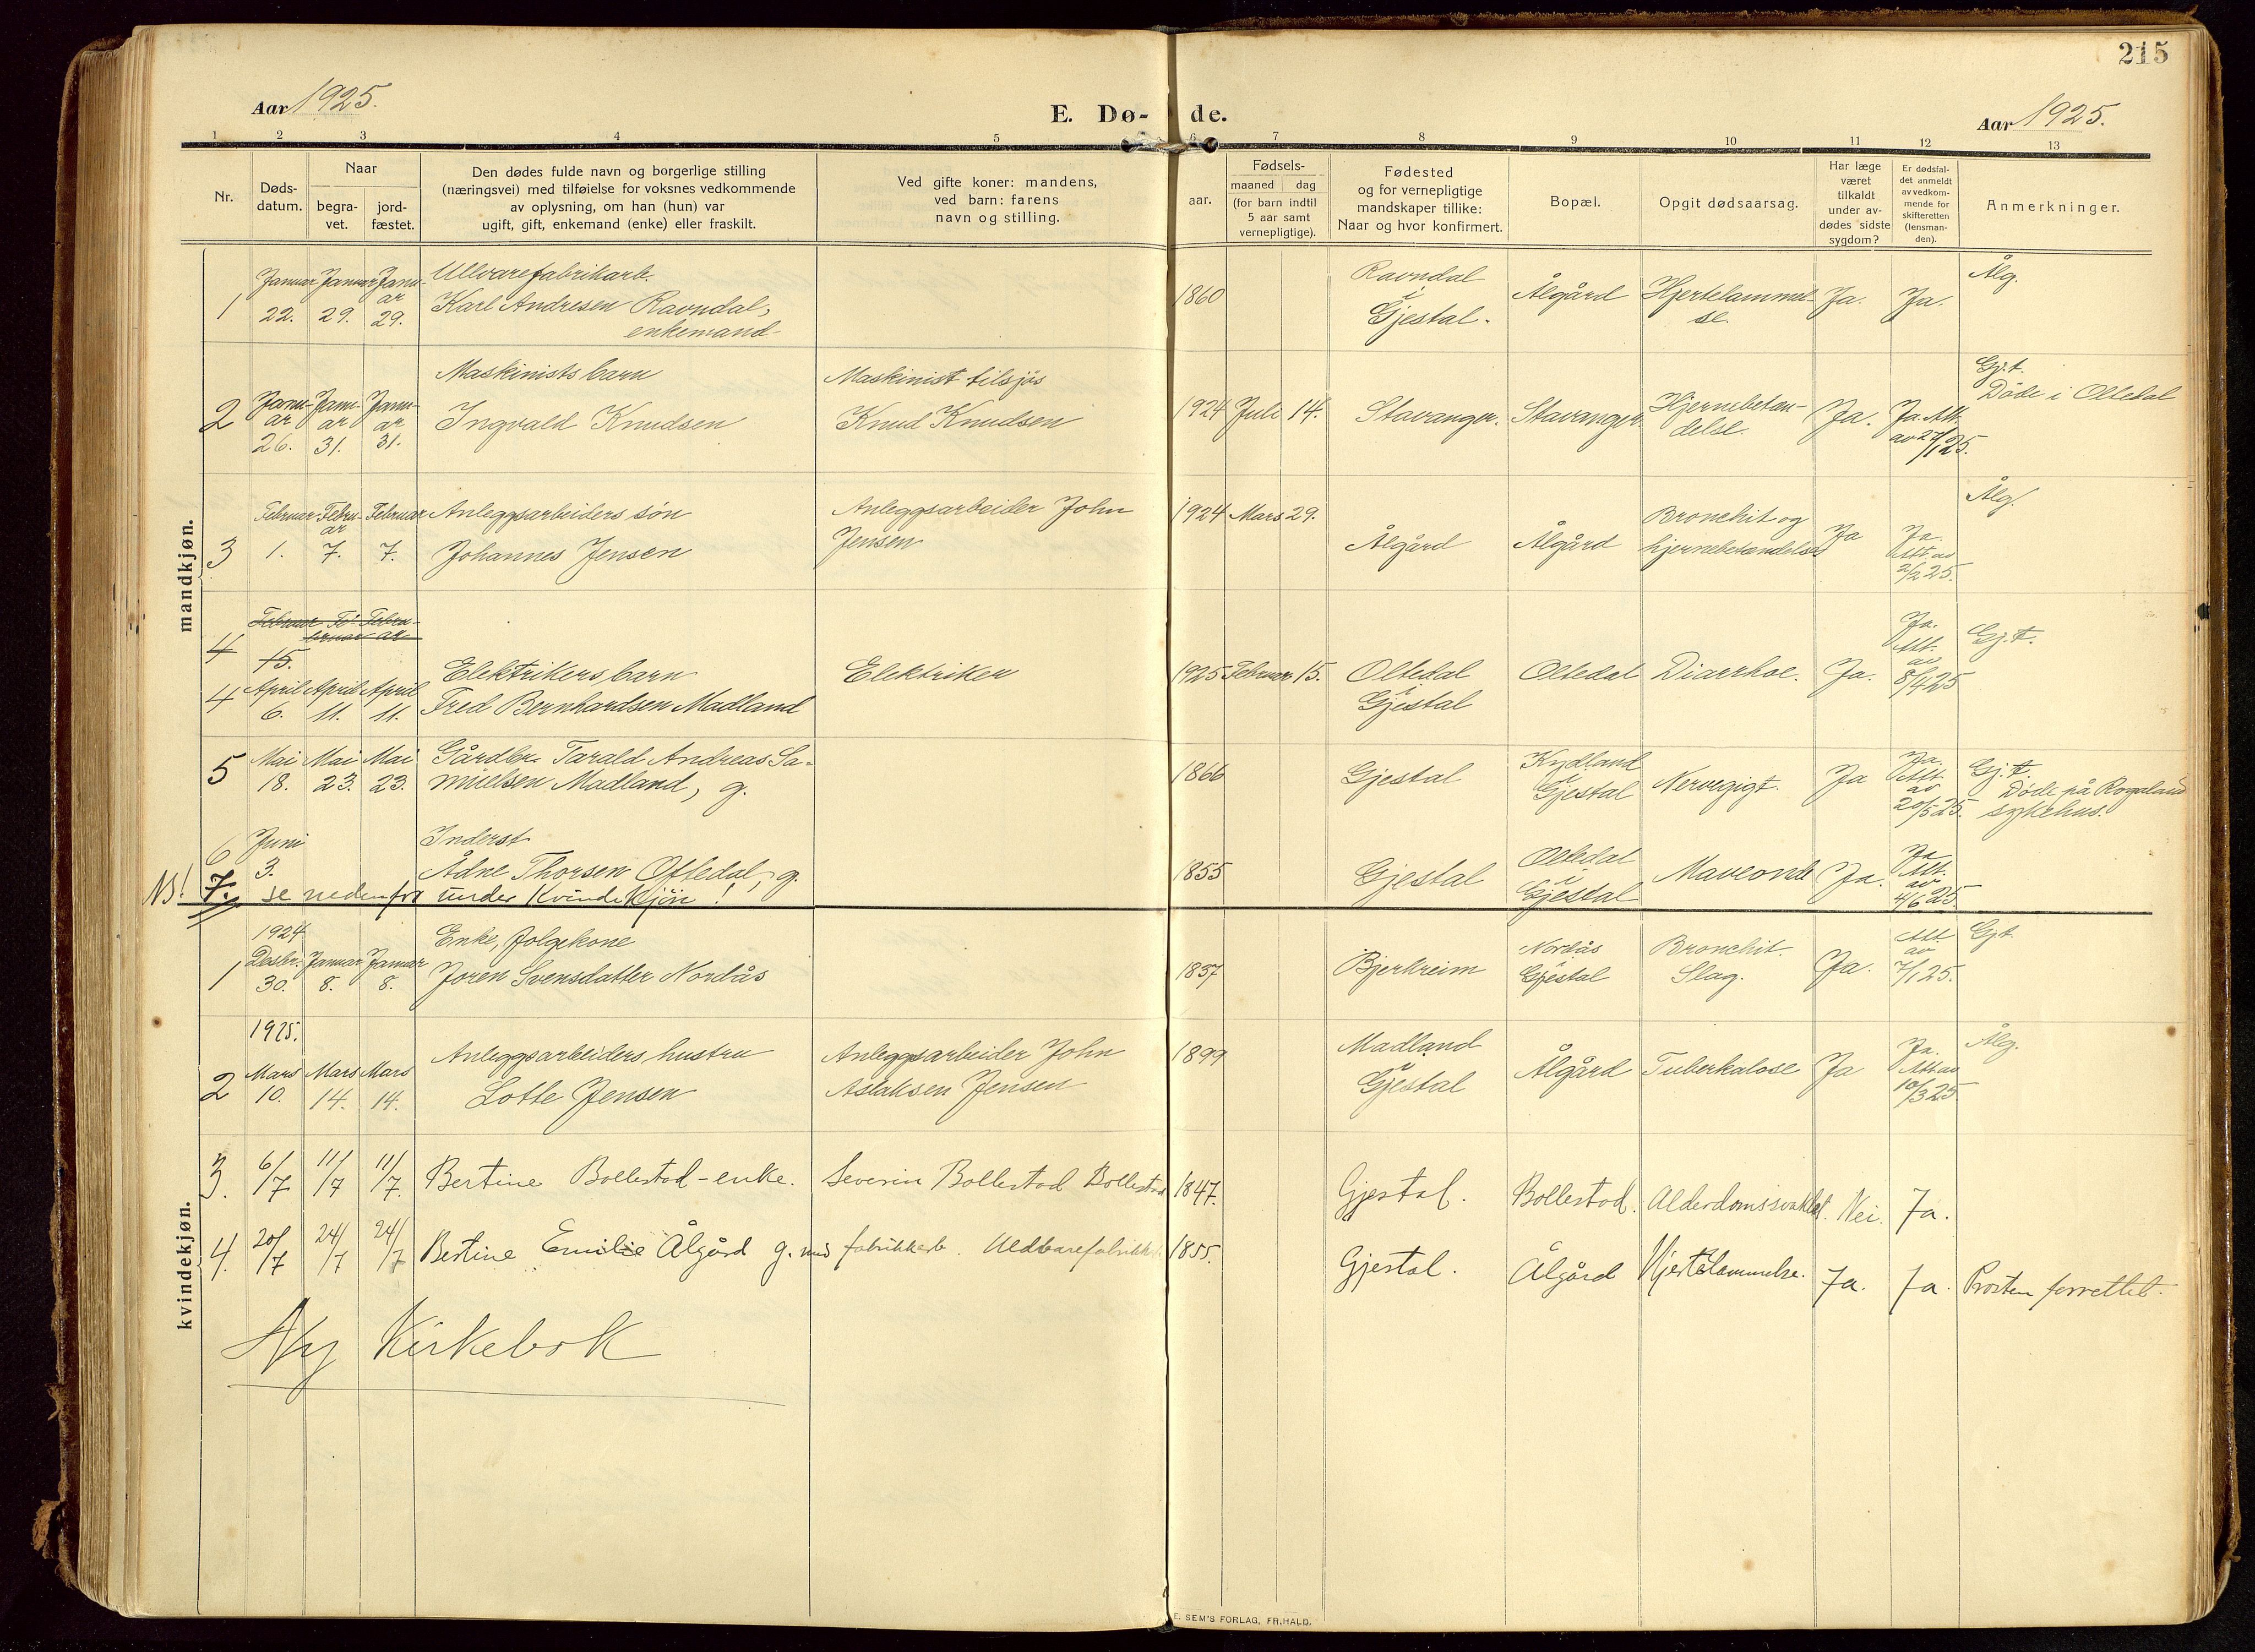 215
Aar 1925.
E. Dø- de.
Aar 1925.
1 2 3 4 5 6 7 8 9 10 11 12 13
Nr.
Døds-
datum.
Naar
begra-
vet.
jord-
fæstet.
Den dødes fulde navn og borgerlige stilling
(næringsvei) med tilføielse for voksnes vedkommende
av oplysning, om han (hun) var
ugift, gift, enkemand (enke) eller fraskilt.
Ved gifte koner: mandens,
ved barn: farens
navn og stilling.
Fødsels-
aar.
maaned dag
(for barn indtil
5 aar samt
vernepligtige).
Fødested
og for vernepligtige
mandskaper tillike:
Naar og hvor konfirmert.
Bopæl.
Opgit dødsaarsag.
Har læge
været
tilkaldt
under av-
dødes sidste
sygdom?
Er dødsfal-
det anmeldt
av vedkom-
mende for
skifteretten
(lensman-
den).
Anmerkninger.
mandkjøn.
1
Januar
22.
Januar
29.
Janu-
ar
29.
Ullvarefabrikarb.
Karl Andresen Ravndal,
enkemand
1860
Ravndal
i
Gjestal.
Ålgård
Hjertelammel-
se.
Ja.
Ja.
Ålg.
2
Janu-
ar
26.
Janu-
ar
31.
Janu-
ar
31.
Maskinists barn
Ingvald Knudsen
Maskinist tilsjøs
Knud Knudsen
1924 Juli 14.
Stavanger.
Stavanger.
Hjernebetæn-
delse.
Ja.
Ja. Att.
av 27/1 25.
Gj.t.
Døde i Oltedal
3
Februar
1.
Febru-
ar
7.
Februar
7.
Anleggsarbeiders søn
Johannes Jensen
Anleggsarbeider John
Jensen
1924 Mars 29.
Ålgård
Ålgård
Bronchit og
hjernebetændelse
Ja
Ja.
Att. av
2/2 25.
Ålg.
4
Februar Fe- Febru-
bruar ar
15.
4
April
6.
April
11.
April
11.
Elektrikers barn
Fred Bernhardsen Madland
Elektriker
1925 Februar 15.
Oltedal
i
Gjestal
Oltedal
Diarrhoe.
Ja.
Ja.
Att.
av
8/4 25
Gj.t.
5
Mai
18.
Mai
23.
Mai
23.
Gårdbr. Tarald Andreas Sa-
muelsen Madland, g.
1866
Gjestal
Kydland
i
Gjestal
Nervegigt.
Ja
Ja.
Att.
av
20/5 25.
Gj.t.
Døde på Rogaland
sykehus.
6
Juni
3.
Inderst
Ådne Thorsen Oftedal, g.
1855
Gjestal
Oltedal
i
Gjestal
Maveonde
Ja.
Ja
Att.
av
4/6 25
NB! 7. se nedenfor under Kvindekjøn!
kvindekjøn.
1
1924
Desbr.
30.
Januar
8.
Januar
8.
Enke, folgekone
Joren Svensdatter Nordås
1837
Bjerkreim
Nordås
Gjestal
Bronchit.
Slag.
Ja.
Att.
av
7/1 25.
Gj.t.
1925.
2
Mars
10.
Mars
14.
Mars
14.
Anleggsarbeiders hustru
Lotte Jensen
Anleggsarbeider John
Aslaksen Jensen
1899
Madland
i
Gjestal
Ålgård
Tuberkulose
Ja
Ja.
Att av
10/3 25
Ålg.
3. 6/7 11/7 11/7. Bertine Bollestad-enke. Severin Bollestad Bollestad 1847. Gjestal. Bollestad. Alderdomssvakhet. Nei. Ja.
4. 20/7 24/7 24/7 Bertine Emilie Ålgård g. med fabrikkarb. Uldvarefabrikk 1855. Gjestal. Ålgård Hjertelammelse. Ja. Ja. Prosten forrettet.
Ny Kirkebok
E. SEM'S FORLAG, FR.HALD.